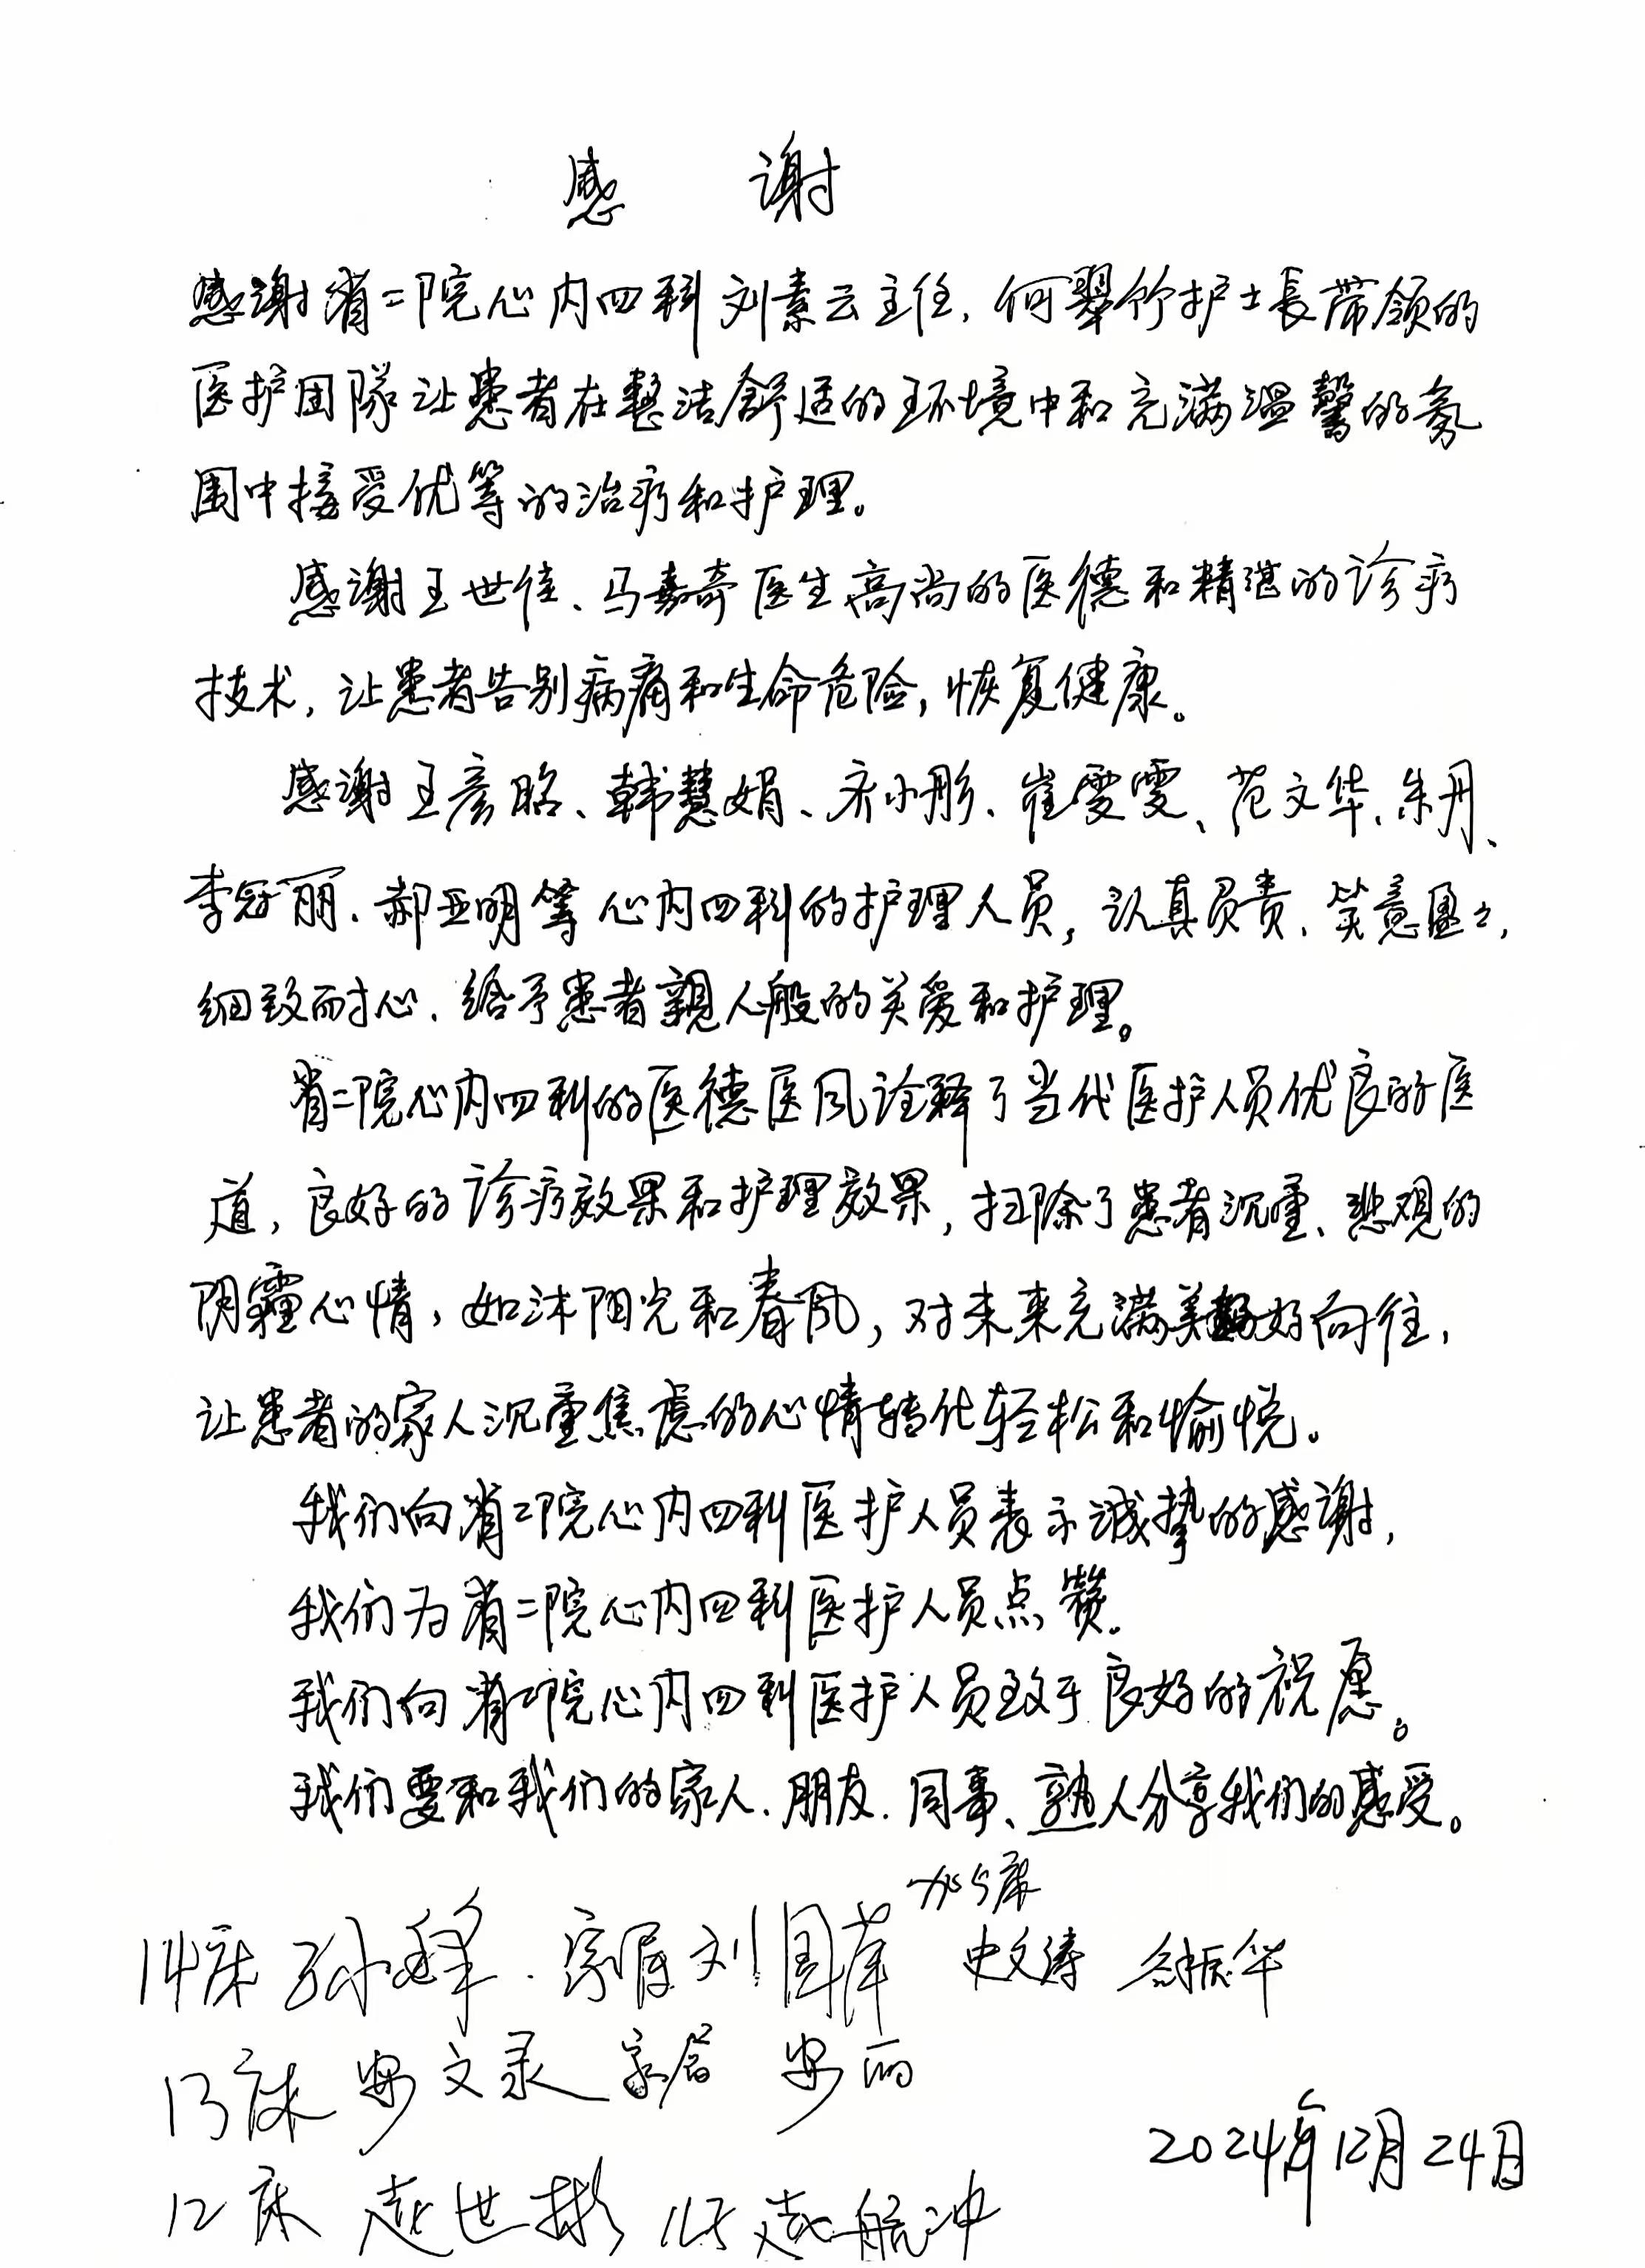 感 谢
感谢省二院心内四科刘素云主任，何翠竹护士長带领的
医护团隊让患者在整洁舒适的环境中和充满温馨的氛
围中接受优等的治疗和护理。
感谢王世佳、马嘉奇医生高尚的医德和精湛的诊疗
技术，让患者告别病痛和生命危险，恢复健康。
感谢王彦昭、韩慧娟、齐小彤、崔雯雯、范文华、朱丹、
李冠丽、郝亚明等心内四科的护理人员，认真负责、笑意盈々，
细致耐心、给予患者親人般的关爱和护理。
省二院心内四科的医德医风诠释了当代医护人员优良的医
道，良好的诊疗效果和护理效果，扫除了患者沉重、悲观的
阴霾心情，如沐阳光和春风，对未来充满美好向往，
让患者的家人沉重焦虑的心情转化轻松和愉悦。
我们向省二院心内四科医护人员表示诚挚的感谢，
我们为省二院心内四科医护人员点赞。
我们向省二院心内四科医护人员致于良好的祝愿。
我们要和我们的家人、朋友、同事、熟人分享我们的感受。
加5床
14床 孙 家属 刘国 史文涛 振华
13床 安文录 家属 安丽
2024年12月24日
12床 赵世彬 赵航冲